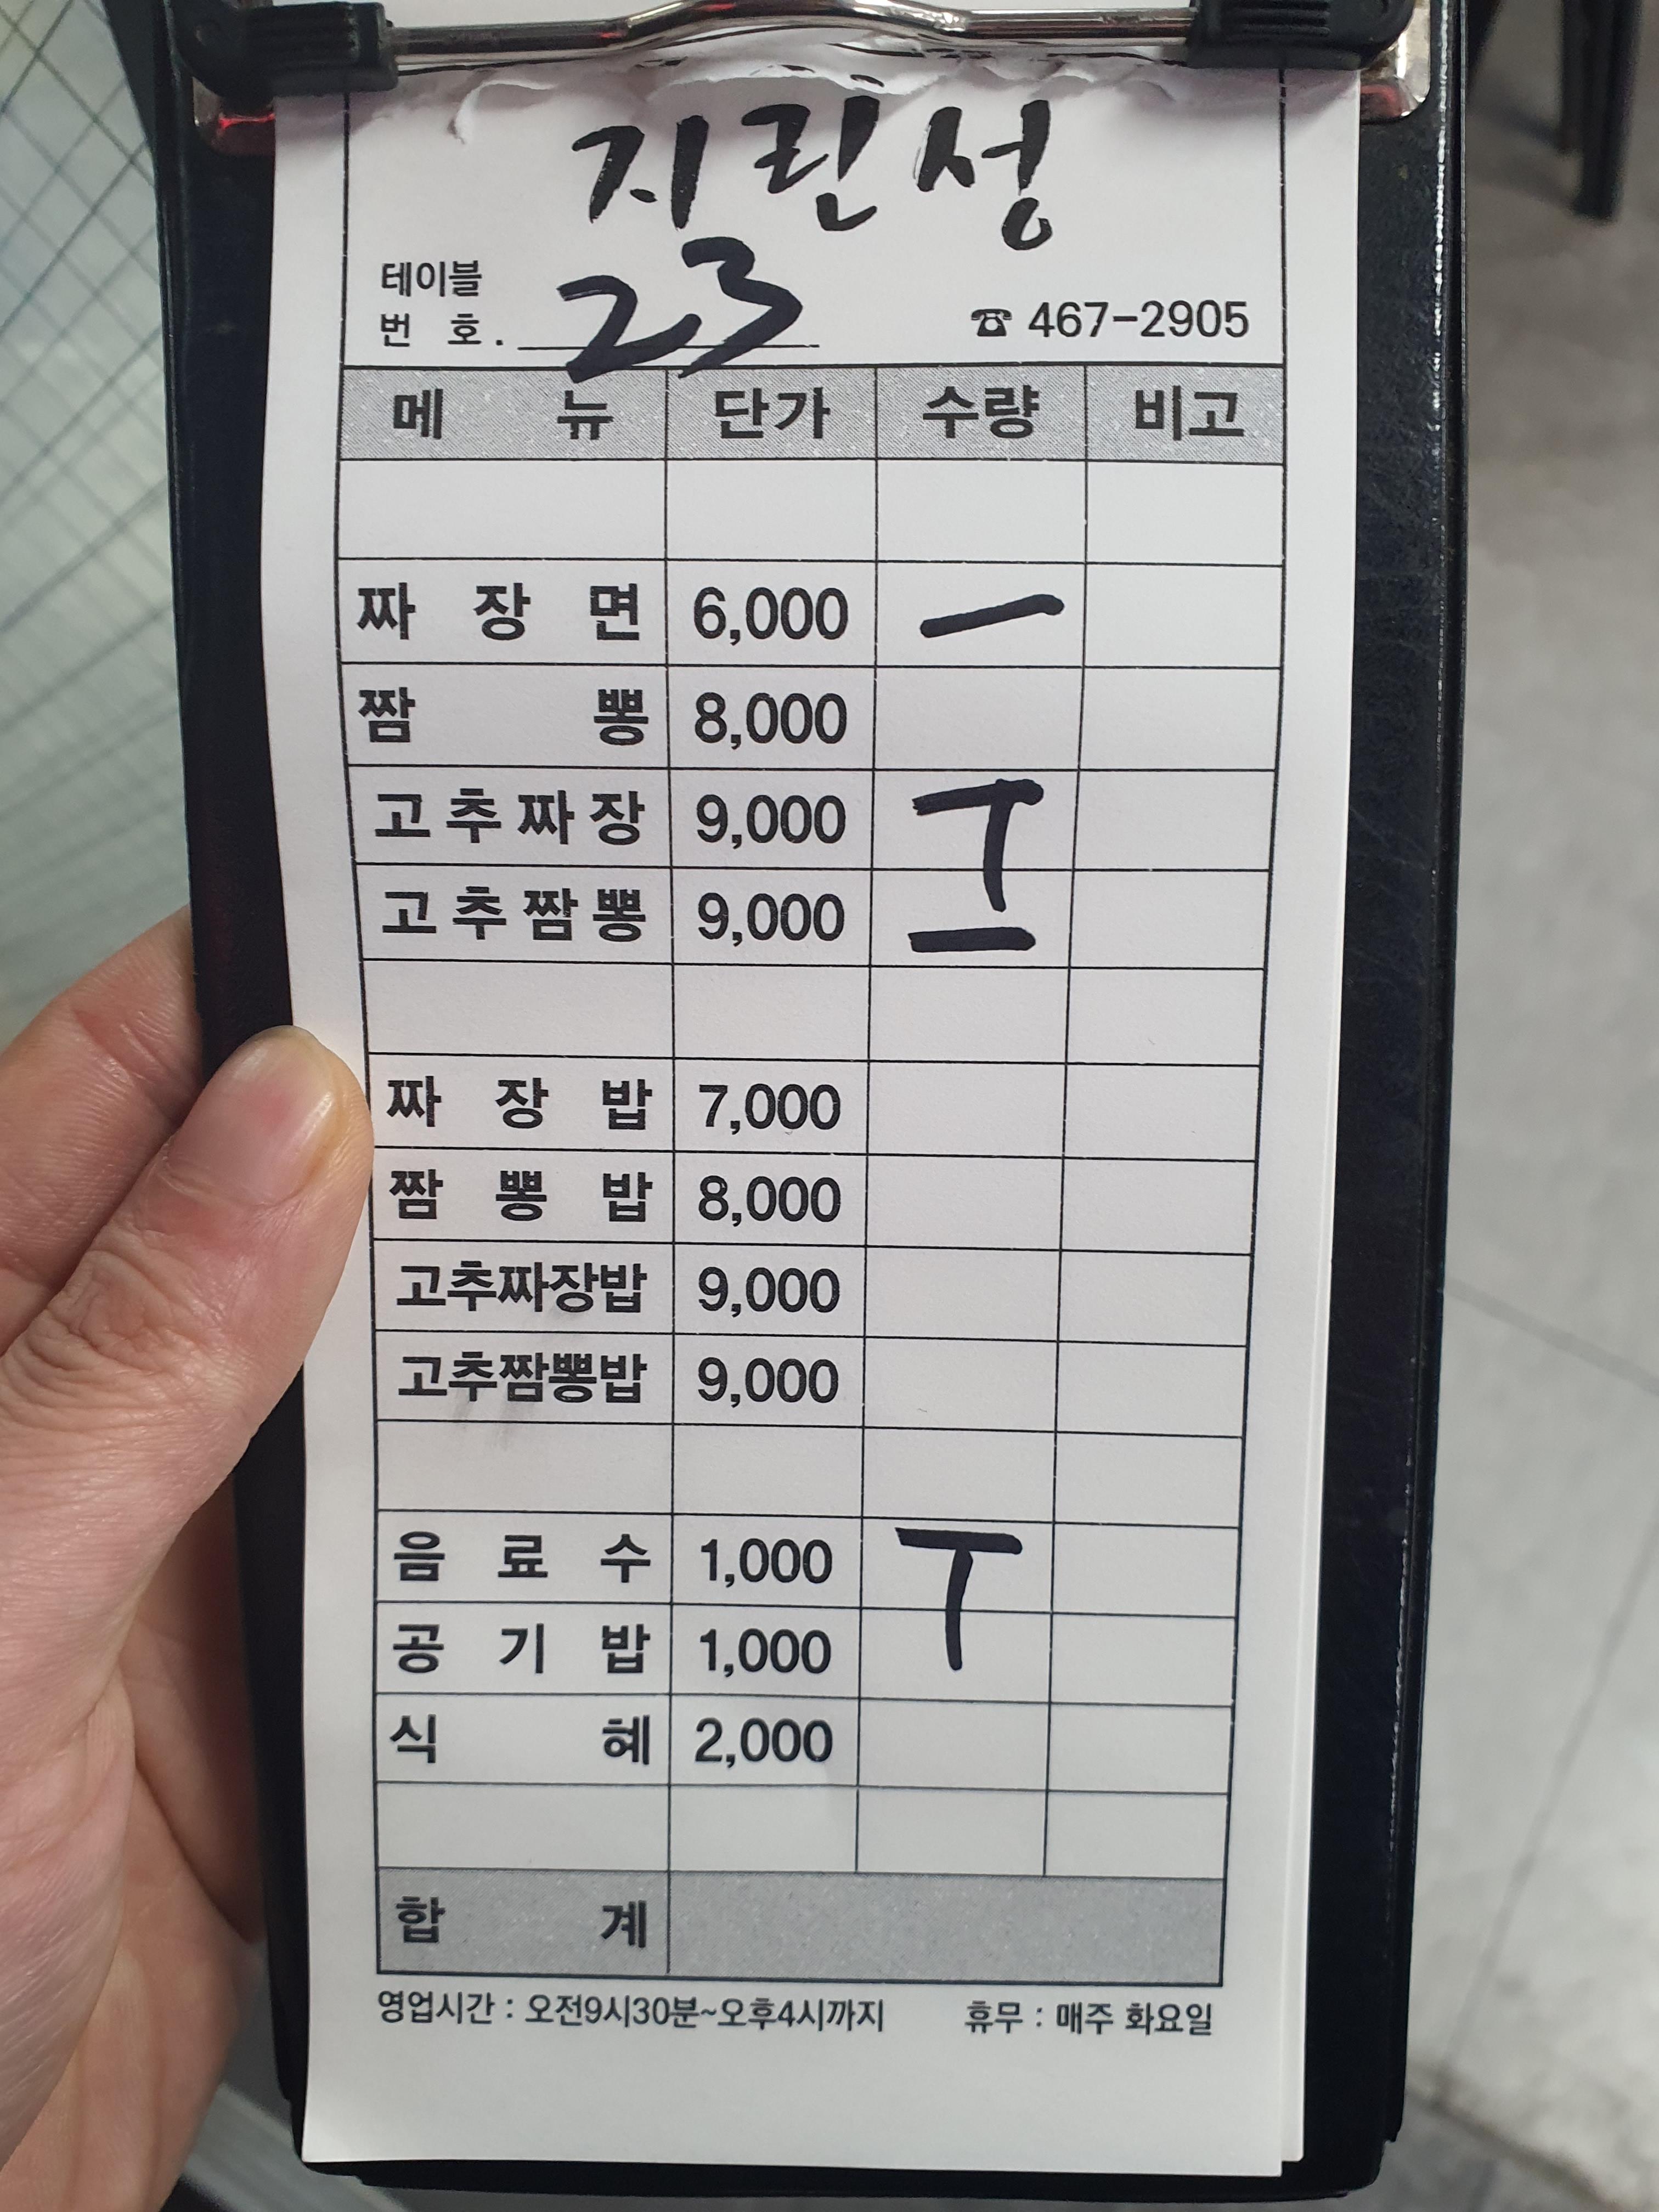 지린성
테이블
번 호. 23 ☎ 467-2905
메 뉴 단가 수량 비고
짜 장 면 6,000 一
짬 뽕 8,000
고추짜장 9,000 T
고추짬뽕 9,000 一
짜 장 밥 7,000
짬 뽕 밥 8,000
고추짜장밥 9,000
고추짬뽕밥 9,000
음 료 수 1,000 T
공 기 밥 1,000
식 혜 2,000
합 계
영업시간 : 오전9시30분~오후4시까지 휴무 : 매주 화요일